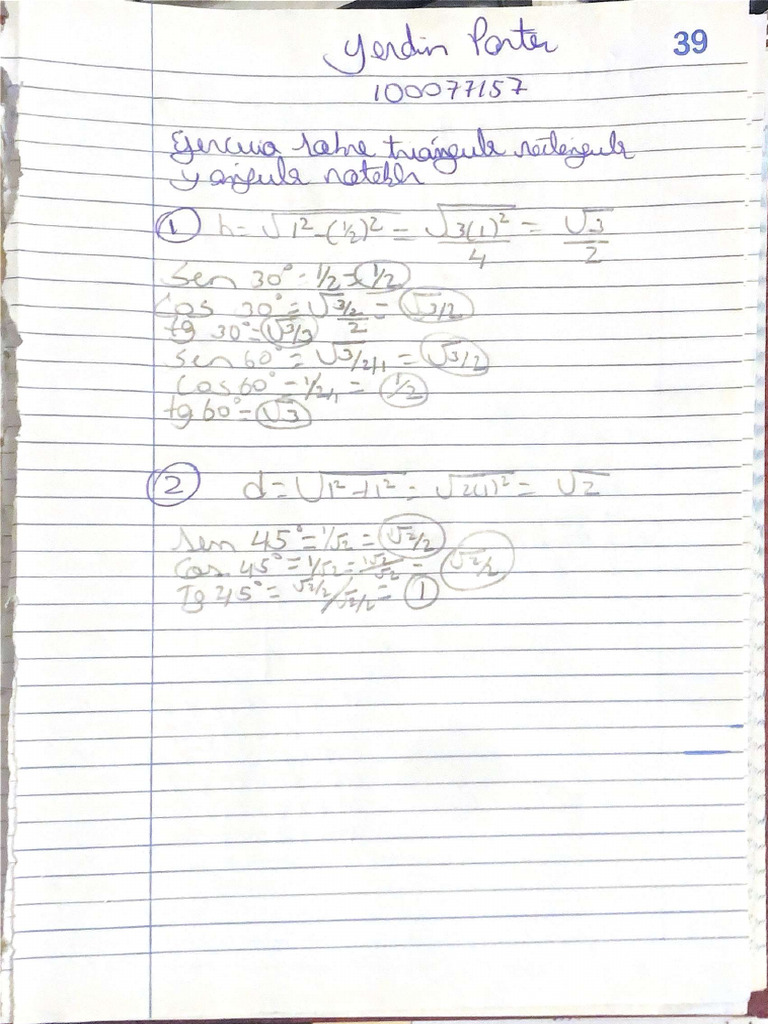 Yerdin Porter
39
100077157
Ejercicio sobre triángulo rectángulo
y ángulo notable
① h = √1² - (½)² = √3(1)²/4 = √3/2
Sen 30° = 1/2 = 1/2
Cos 30° = √3/2/2 = √3/2
tg 30° = √3/3
sen 60° = √3/2/1 = √3/2
Cos 60° = 1/2/1 = 1/2
tg 60° = √3
② d = √1² + 1² = √2(1)² = √2
sen 45° = 1/√2 = √2/2
Cos 45° = 1/√2 = 1√2/√2 = √2/2
Tg 45° = √2/2/√2/2 = 1